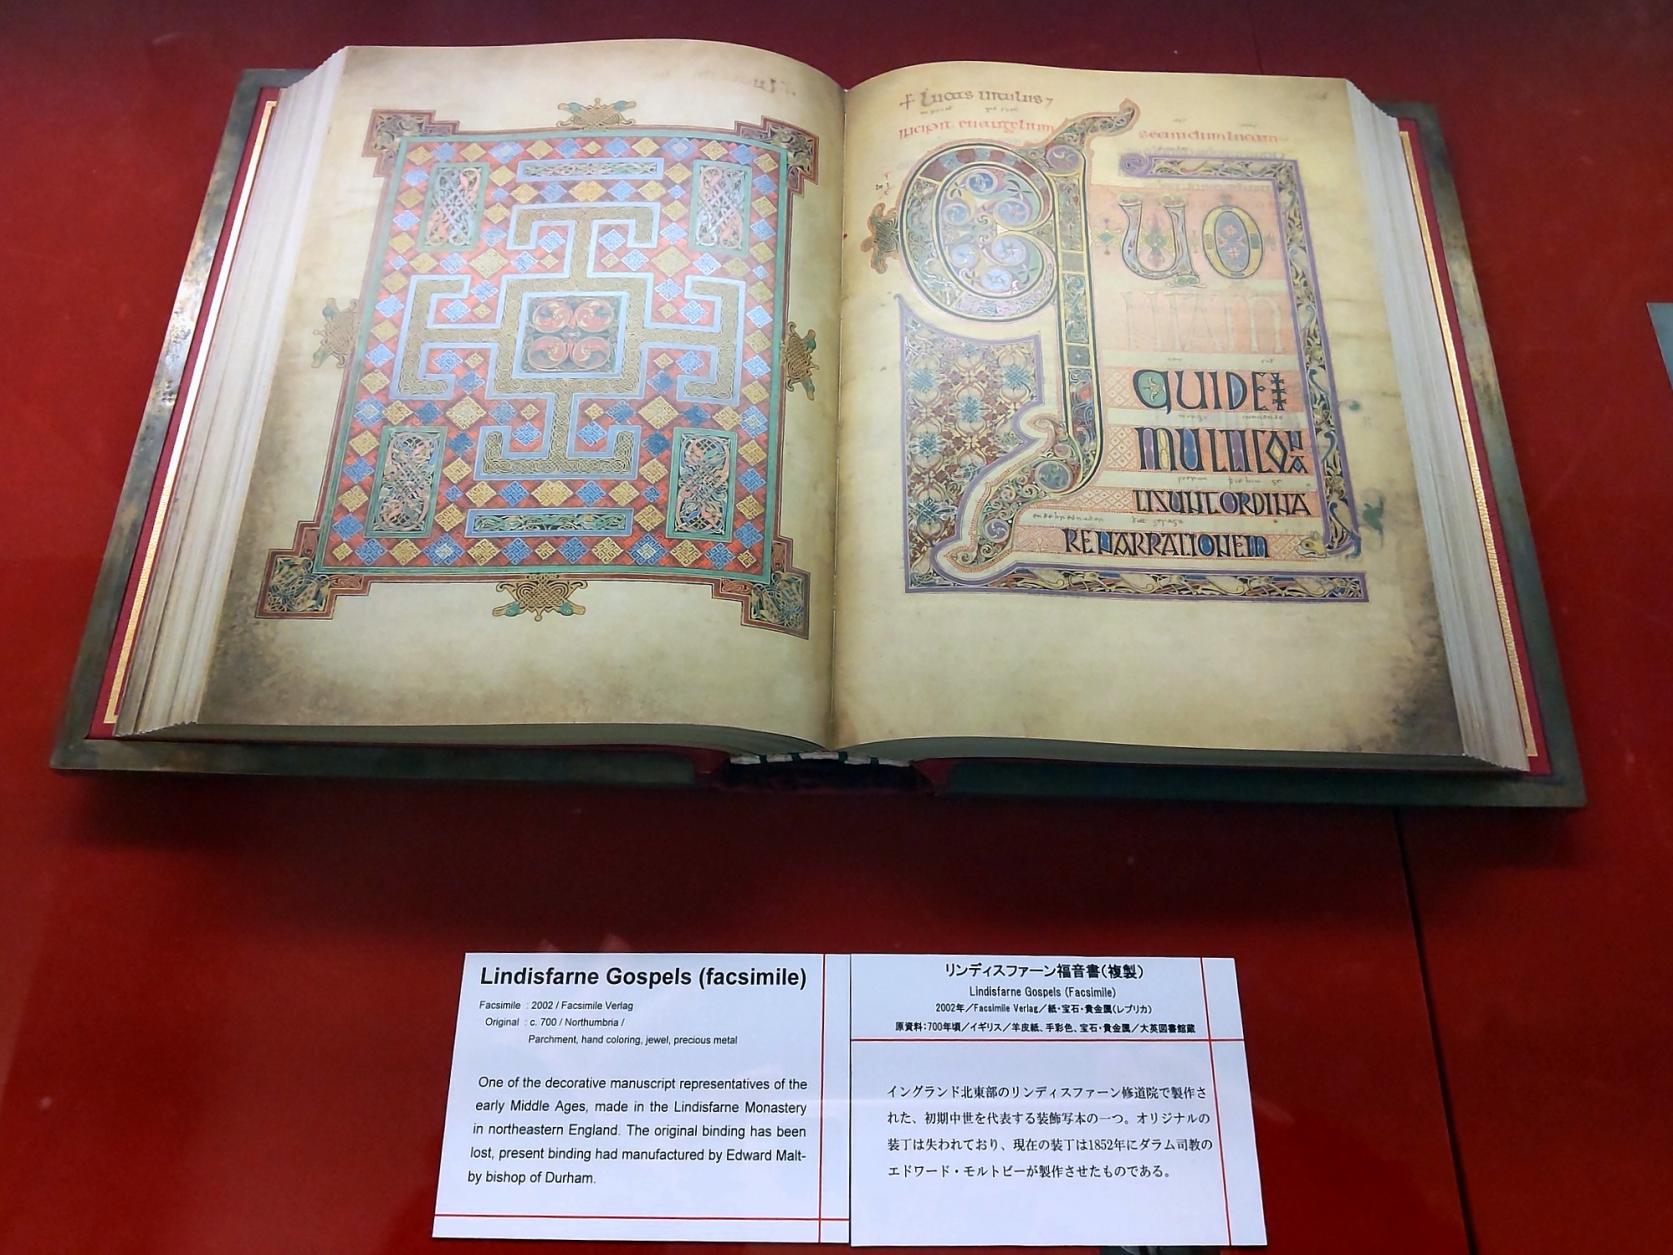 + Lucas uitulus
incipit euangelium secundum lucam
QUO
NIAM
QUIDEM
MULTI CONA
TI SUNT ORDINA
RE NARRATIONEM
Lindisfarne Gospels (facsimile)
Facsimile : 2002 / Facsimile Verlag
Original : c. 700 / Northumbria /
Parchment, hand coloring, jewel, precious metal
One of the decorative manuscript representatives of the
early Middle Ages, made in the Lindisfarne Monastery
in northeastern England. The original binding has been
lost, present binding had manufactured by Edward Malt-
by bishop of Durham.
リンディスファーン福音書(複製)
Lindisfarne Gospels (Facsimile)
2002年／Facsimile Verlag／紙・宝石・貴金属(レプリカ)
原資料:700年頃／イギリス／羊皮紙、手彩色、宝石・貴金属／大英図書館蔵
イングランド北東部のリンディスファーン修道院で製作さ
れた、初期中世を代表する装飾写本の一つ。オリジナルの
装丁は失われており、現在の装丁は1852年にダラム司教の
エドワード・モルトビーが製作させたものである。